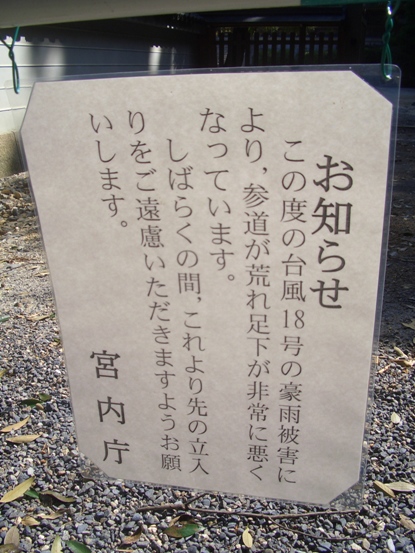 お知らせ
この度の台風18号の豪雨被害に
より，参道が荒れ足下が非常に悪く
なっています。
しばらくの間，これより先の立入
りをご遠慮いただきますようお願
いします。
宮内庁